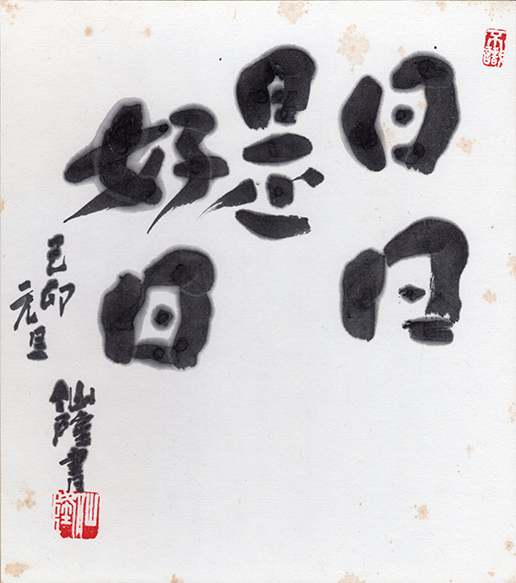 日日
是
好日
己卯
元旦
仙陸書